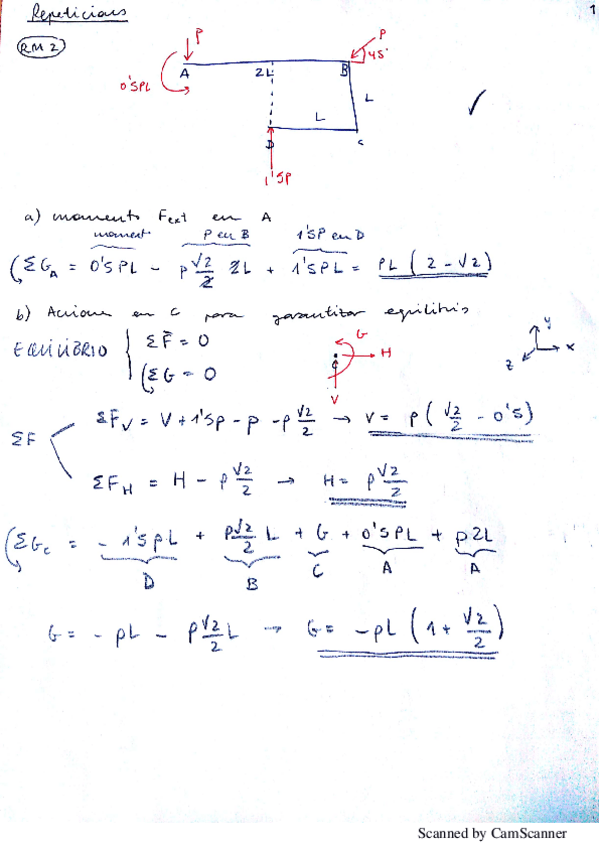 Repeticions
1
RM2
P
P
45°
A
2L
B
0'5PL
L
L
D
C
1'5P
a) moment Fext en A
moment P en B 1'5P en D
ΣG_A = 0'5PL - P √2/2 2L + 1'5PL = PL (2 - √2)
b) Accions en C per garantitzar equilibri
EQUILIBRIO { ΣF̄ = 0
ΣG = 0
G
C
H
V
y
x
z
ΣF
ΣF_V = V + 1'5P - P - P √2/2 → V = P ( √2/2 - 0'5 )
ΣF_H = H - P √2/2 → H = P √2/2
ΣG_C = - 1'5PL + P√2/2 L + G + 0'5PL + P2L
D B C A A
G = - PL - P √2/2 L → G = -PL ( 1 + √2/2 )
Scanned by CamScanner